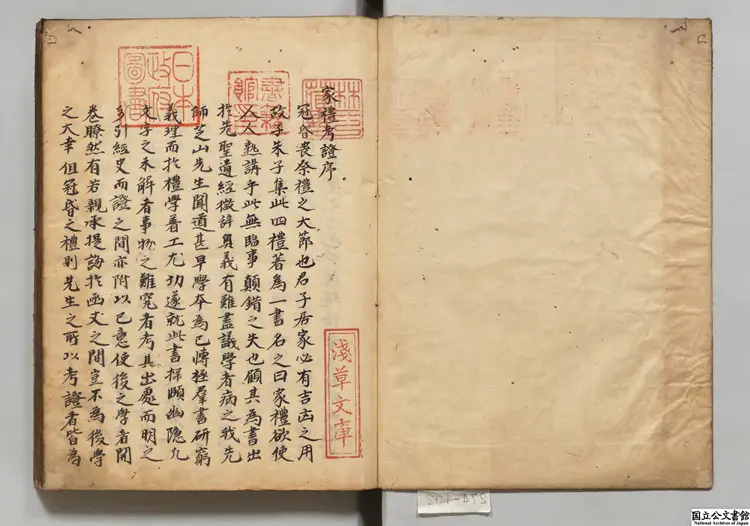 家禮考證序
冠昏喪祭禮之大節也君子居家必有吉凶之用
故子朱子集此四禮著為一書名之曰家禮欲使
人人熟講乎此無臨事顛錯之失也顧其為書出
於先聖遺經微辭奧義有難盡識學者病之我先
師芝山先生聞道甚早學本為己博極羣書研窮
義理而於禮學着工尤切遂就此書探賾幽隱凡
文字之未解者事物之難究者考其出處而明之
多引經史而證之間亦附以己意使後之學者開
卷瞭然有若親承提誨於函丈之間豈不為後學
之大幸但冠昏之禮則先生之所以考證者皆為
淺草文庫
日本政府圖書
国立公文書館
National Archives of Japan